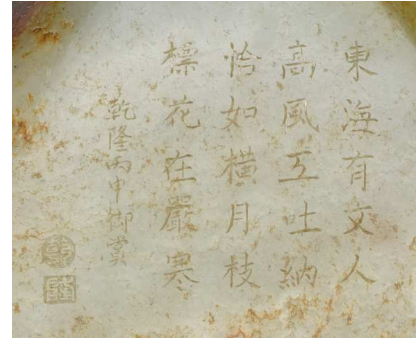 東海有文人
高風互吐納
恰如橫月枝
標花在嚴寒
乾隆丙申御